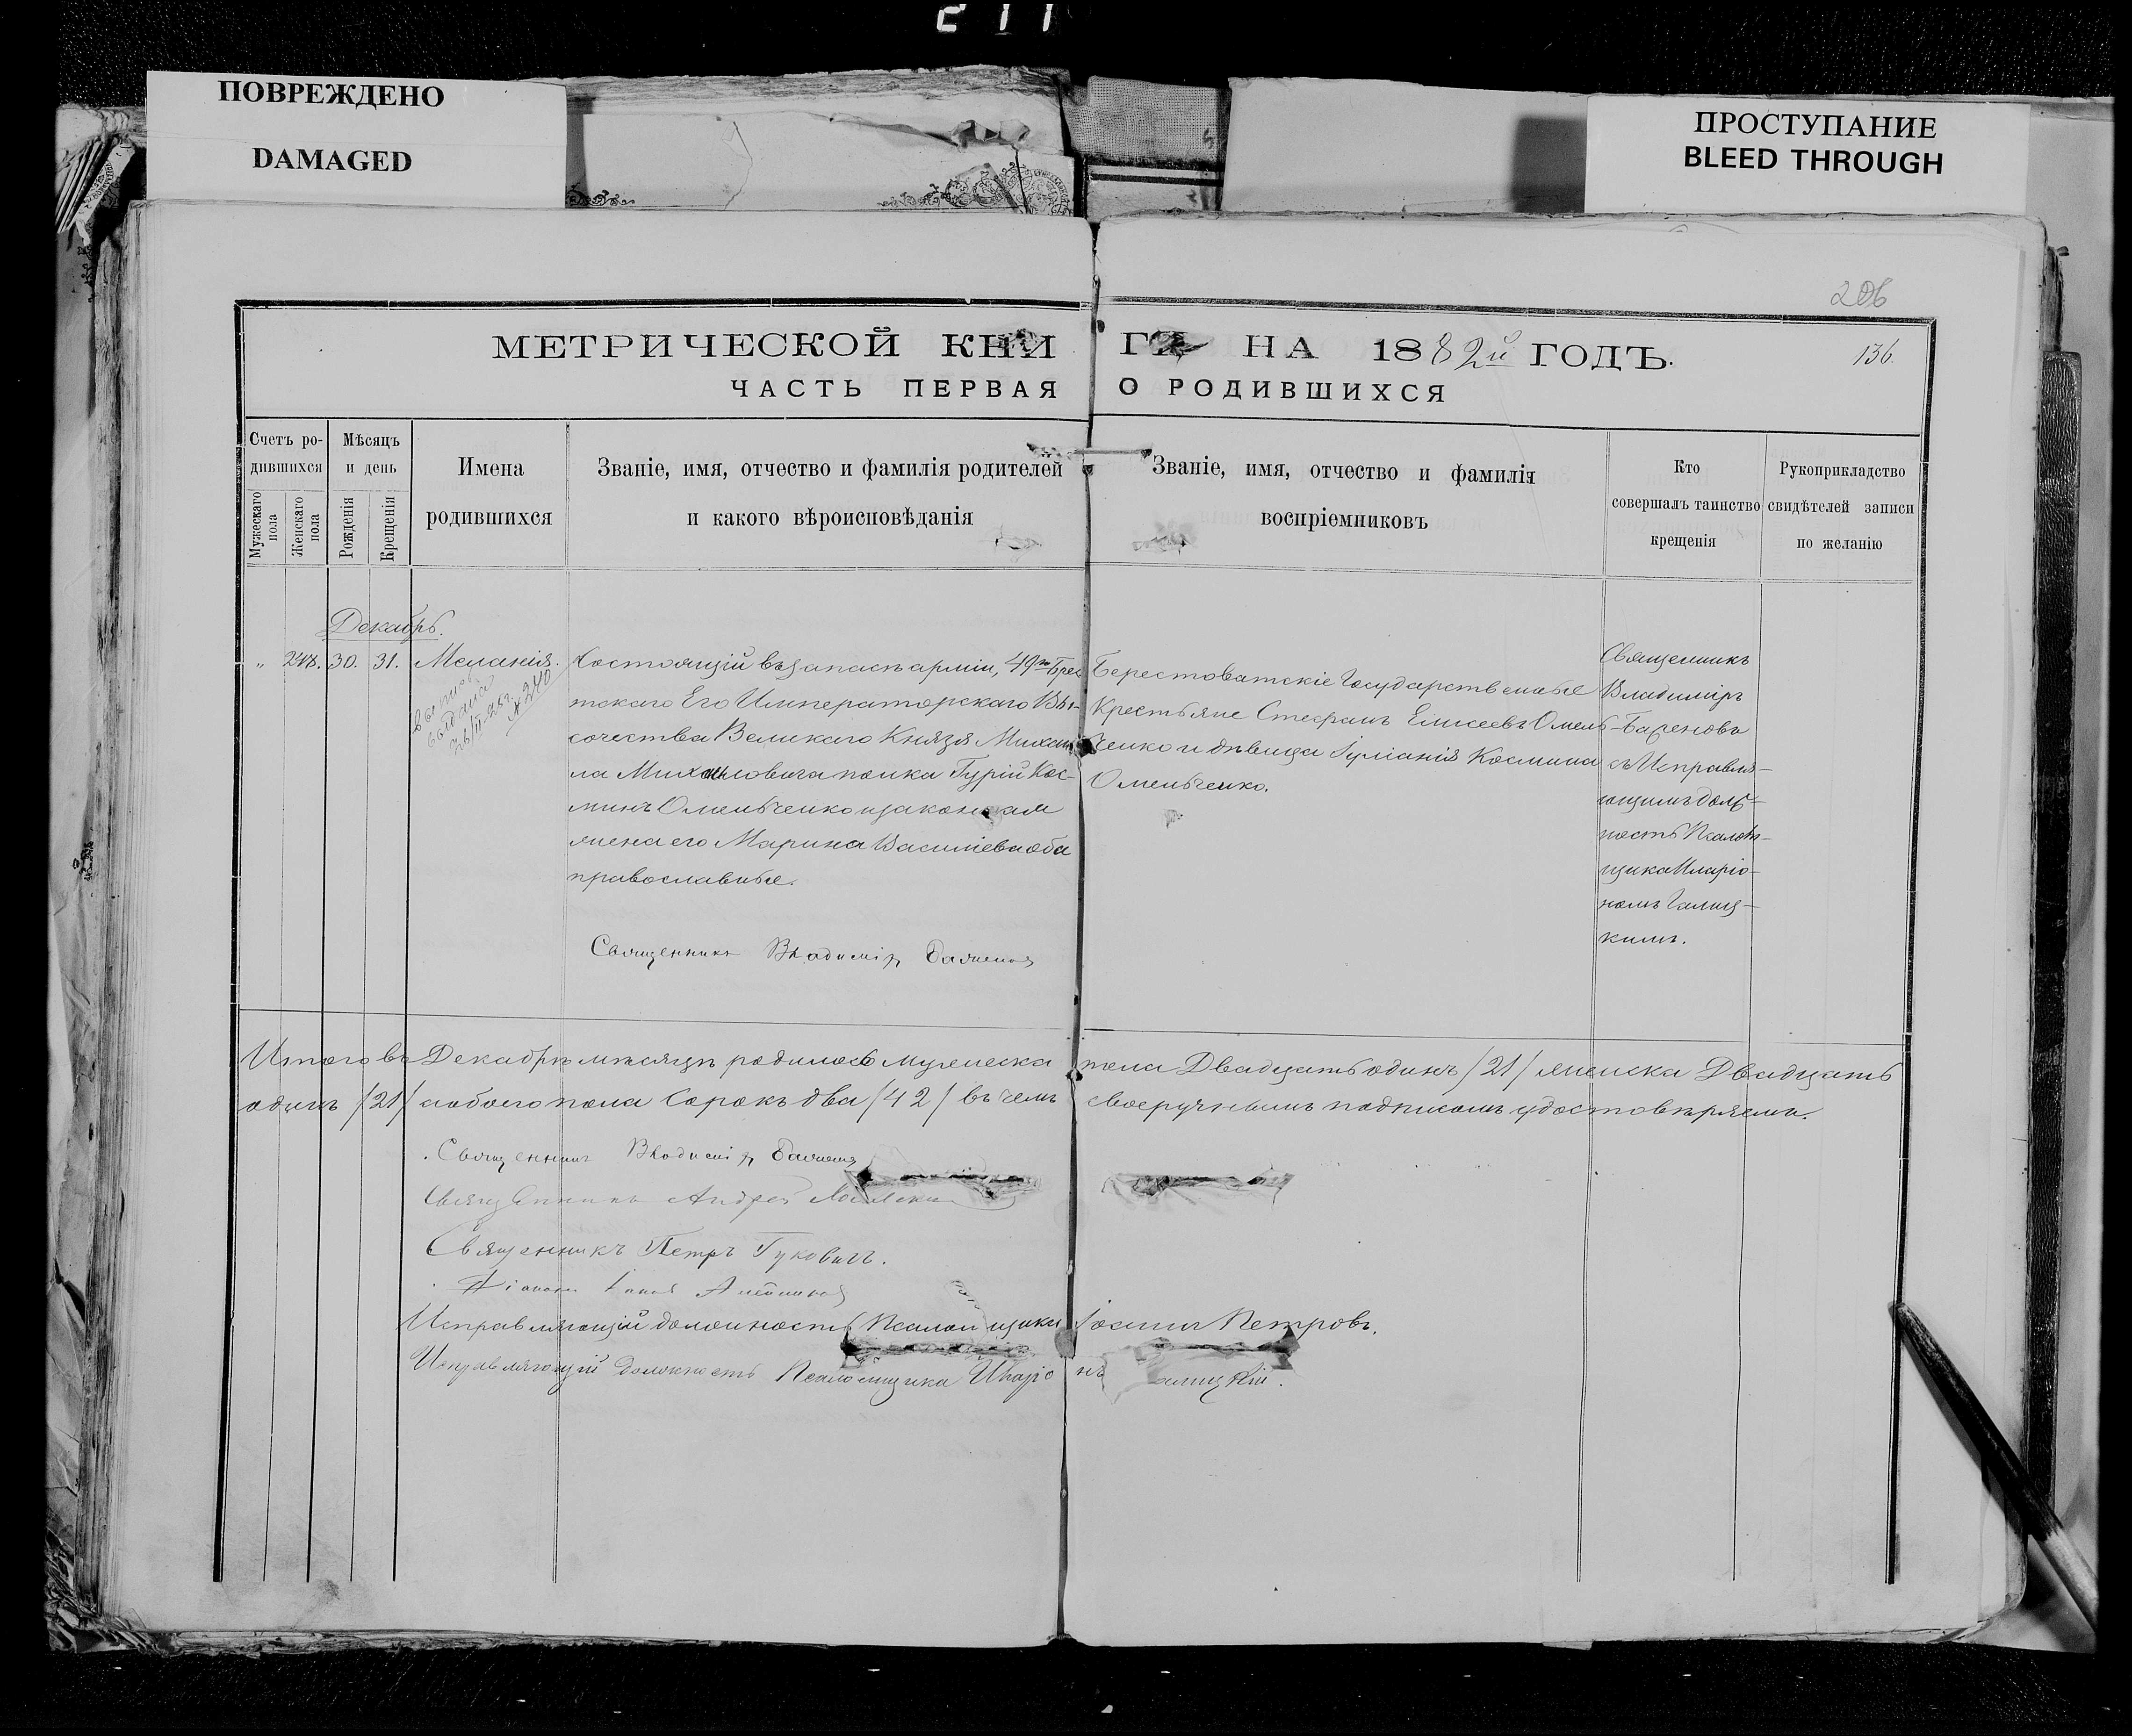 211
ПОВРЕЖДЕНО
DAMAGED
ПРОСТУПАНИЕ
BLEED THROUGH
206
МЕТРИЧЕСКОЙ КНИГИ НА 1882й ГОДЪ.
136.
ЧАСТЬ ПЕРВАЯ О РОДИВШИХСЯ
Счетъ ро-
дившихся
Мужескаго
пола
Женскаго
пола
Мѣсяцъ
и день
Рожденія
Крещенія
Имена
родившихся
Званіе, имя, отчество и фамилія родителей
и какого вѣроисповѣданія
Званіе, имя, отчество и фамилія
воспріемниковъ
Кто
совершалъ таинство
крещенія
Рукоприкладство
свидѣтелей записи
по желанію
Декабрь.
„ 248. 30. 31. Меланія.
№ 240
Состоящій въ запасѣ арміи, 49го Брес
тскаго Его Императорскаго Вы-
сочества Великаго Князя Михаи
ла Михаиловича полка Гурій Кос-
минъ Омельченко и законная
жена его Марина Василіева оба
православные.
Священникъ Владиміръ Баженовъ
Берестоватскіе Государственные
Крестьяне Стефанъ Елисеевъ Омель-
ченко и дѣвица Іуліанія Космина
Омельченко.
Священникъ
Владиміръ
Баженовъ
съ Исправля-
ющимъ долж-
ность Псалом-
щика Иларіо-
номъ Галиц-
кимъ.
Итого въ Декабрѣ мѣсяцѣ родилось мужеска пола Двадцать одинъ /21/ женска Двадцать
одинъ /21/ обоего пола Сорокъ два /42/ въ чемъ своеручнымъ подписомъ удостовѣряемъ.
Священникъ Владиміръ Баженовъ
Священникъ Андрей
Священникъ Петръ Гуковичъ.
Діаконъ
Исправляющій должность Псаломщика Іоаннъ Петровъ.
Исправляющій должность Псаломщика Иларіонъ Галицкій.